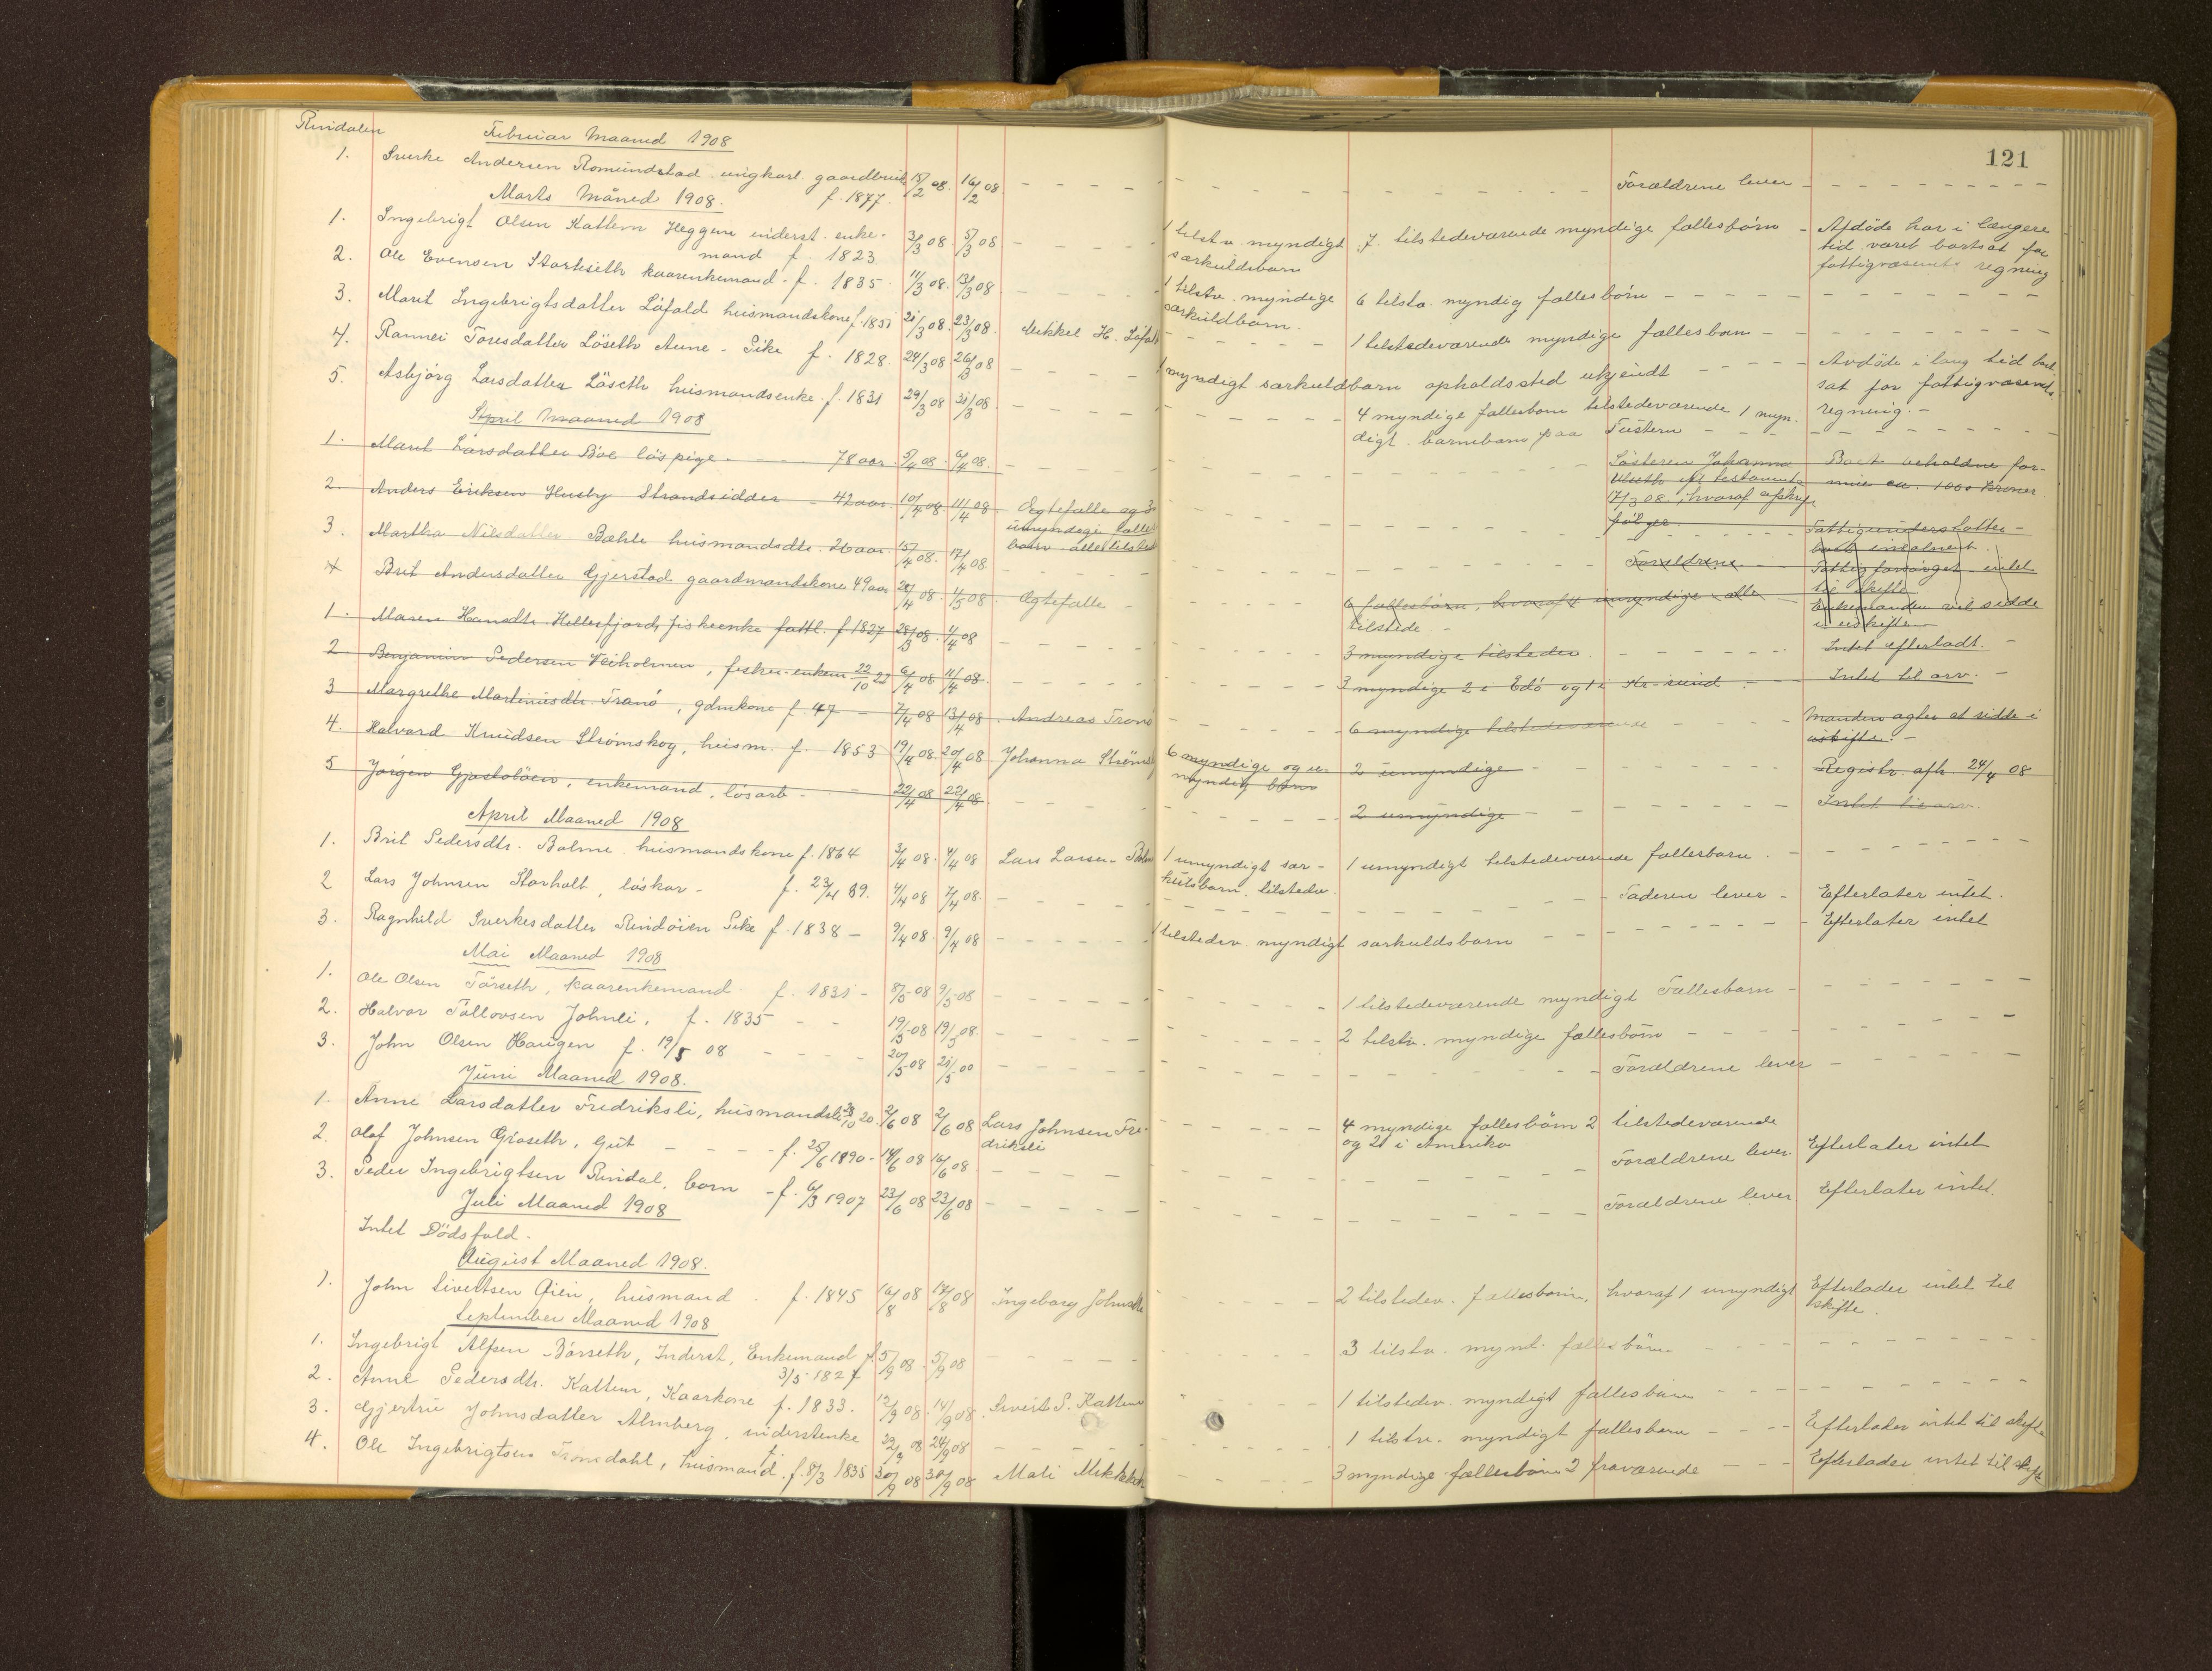 121
Rindalen Februar Maaned 1908
1. Sverke Andersen Romundstad ungkarl gaardbruk 15/2 08. 16/2 08 Forældrene lever
f. 1877.
Marts Måned 1908.
1. Ingebrigt Olsen Kattem Heggem inderst enke- 3/3 08. 5/3 08 1 tilstv. myndigt 7 tilstedeværende myndige fællesbörn Afdöde har i længere
mand f. 1823 særkuldsbarn tid været bortsat for
fattigvæsenets regning
2. Ole Evensen Storliseth kaarenkemand f. 1835. 11/3 08. 13/3 08. 1 tilstv. myndige 6 tilstv. myndig fællesbörn
særkuldbarn.
3. Marit Ingebrigtsdatter Löfald husmandskone f. 1851 21/3 08. 23/3 08. Mikkel H. Löfald 1 tilstedeværende myndige fællesbarn
4. Rannei Toresdatter Löseth Aune - Pike f. 1828. 24/3 08 26/3 08 1 myndigt særkuldbarn opholdssted ukjendt Avdöde i lang tid bort
sat for fattigvæsenets
regning. -
5. Asbjörg Larsdatter Löseth husmandsenke f. 1831 29/3 08 31/3 08. 4 myndige fællesbarn tilstedeværende 1 myn-
digt barnebarn paa Tustern
April Maaned 1908
1. Marit Larsdatter Böe löspige 78 aar. 5/4 08. 6/4 08. Sösteren Johanna Boet beholdne for-
testamente mue ca. 1000 kroner
17/3 08, hvoraf afskr.
fölger
2. Anders Eriksen Husby Strandsidder - 42 aar. 10/4 08 11/4 08 Ægtefælle og 3
umyndige fælles
börn alle tilsted
3. Martha Nilsdatter Bæhle husmandsdtr. 26 aar 15/4 08. 17/4 08. Forældrene Fattigforsörget intet
til skifte
4 Brit Andersdatter Gjerstad gaardmandskone 49 aar 28/4 08. 1/5 08. Ægtefælle 6 fællesbörn, hvoraf 4 umyndige alle Enkemanden vil sidde
tilstede. - i uskifte
1. Maren Hansdtr. Hellesfjord, fiskeenke fattl. f. 1827 28/3 08 1/4 08 3 myndige tilsteder Intet efterladt.
2. Benjamin Pedersen Veiholmen, fisker enkem 22/10 6/4 08 11/4 08. 3 myndige 2 i Edö og 1 i Kr.sund Intet til arv.
3 Margrethe Martinusdtr. Tranö, gdmkone f. 47 7/4 08 13/4 08. Andreas Tranö 6 myndige tilstedeværende Manden agter at sidde i
uskifte. -
4. Halvard Knudsen Strömskog, husm. f. 1853 19/4 08. 20/4 08 Johanna Ström 6 myndige og u- 2 umyndige Registr. afh. 24/4 08
myndig börn
5 Jörgen Gjestolöen, enkemand, lösarb. 22/4 08 22/4 08. 2 umyndige Intet til arv.
April Maaned 1908
1. Brit Pedersdtr. Bolme husmandskone f. 1864 3/4 08. 4/4 08 Lars Larsen Bolme 1 umyndigt sær- 1 umyndigt tilstedeværende fællesbarn.
kulsbarn. tilstedv.
2 Lars Johnsen Storholt, löskar - f. 23/4 89. 4/4 08 7/4 08. Faderen lever - Efterlater intet.
3. Ragnhild Sverkesdatter Rindöien Pike f. 1838 - 9/4 08. 9/4 08 1 tilstedev. myndigt særkuldsbarn Efterlater intet
Mai Maaned 1908
1. Ole Olsen Törseth, kaarenkemand f. 1831 - 8/5 08 9/5 08 1 tilstedeværende myndigt Fællesbarn
2. Halvor Tollovsen Johnli, f. 1835 19/5 08 19/5 08. 2 tilstv. myndige fællesbörn
3. John Olsen Haugen f. 19/5 08 20/5 08 21/5 00 Forældrene lever
Juni Maaned 1908.
1. Anne Larsdatter Fredriksli, husmandsk. 28/10 20. 2/6 08 2/6 08 Lars Johnsen Fre- 4 myndige fællesbörn 2 tilstedeværende
driksli og 2 i Amerika
2. Olof Johnsen Gröseth, Gut f. 25/6 1890 - 14/6 08 16/6 08 Forældrene lever. Efterlater intet
3. Peder Ingebrigtsen Rindal, barn - f. 6/3 1907 23/6 08 23/6 08 Forældrene lever. Efterlater intet.
Juli Maaned 1908
Intet Dödsfald.
August Maaned 1908.
1. John Sivertsen Öien, husmand f. 1845 16/8 08 17/8 08 Ingeborg Johnsdtr 2 tilstedev. fællesbörn, hvoraf 1 umyndigt Efterlader intet til
skifte.
September Maaned 1908
1. Ingebrigt Alfsen Börseth, Inderst, Enkemand f. 5/9 08. 5/9 08 3 tilstv. mynd. fællesbörn
3/5 1827
2. Anne Pedersdtr. Kattem, Kaarkone f. 1833. 12/9 08. 14/9 08. Sivert P. Kattem 1 tilstedev. myndigt fællesbarn
3. Gjertru Johnsdatter Almberg, inderstenke 22/9 08 24/9 08 1 tilstv. myndigt fællesbarn Efterlader intet til skifte
4. Ole Ingebrigtsen Tronsdahl, husmand. f. 8/3 1835 30/9 08 30/9 08 Mali 3 myndige fællesbörn 2 fraværende Efterlader intet til skifte